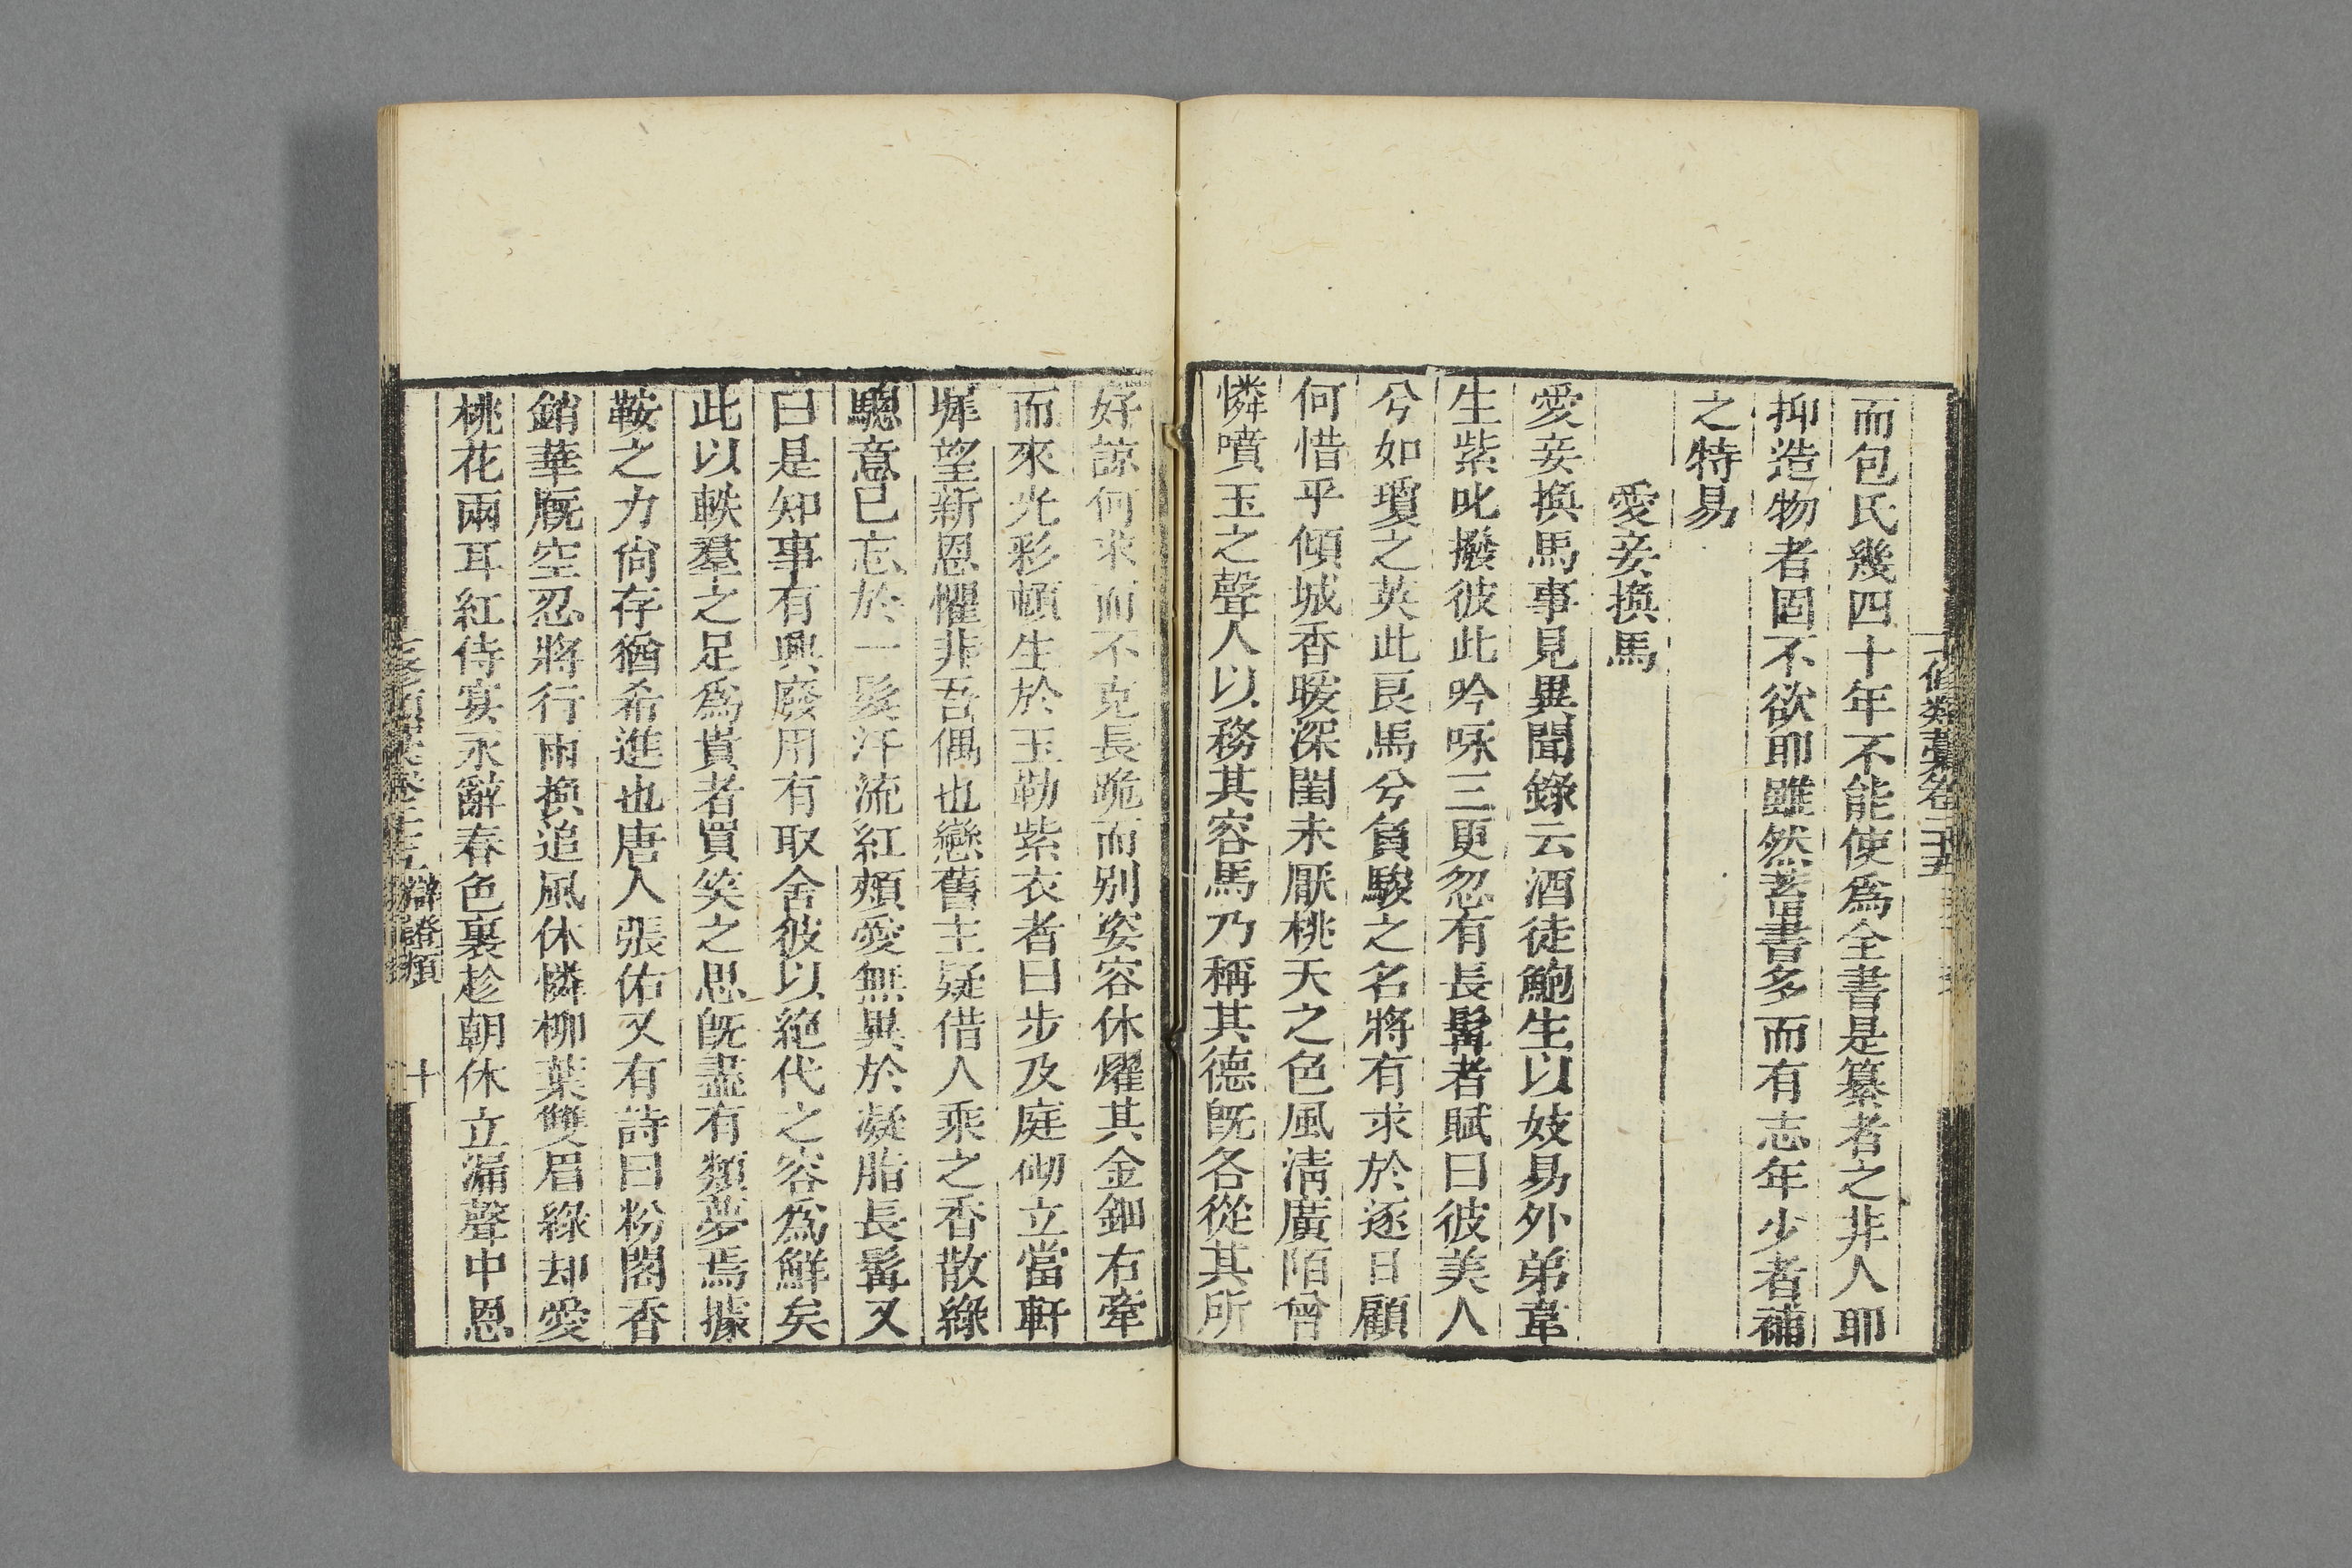 七修類藁卷二十五
而包氏幾四十年不能使爲全書是纂者之非人耶
抑造物者固不欲耶雖然著書多而有志年少者補
之特易
愛妾換馬
愛妾換馬事見異聞錄云酒徒鮑生以妓易外弟韋
生紫叱撥彼此吟咏三更忽有長髯者賦曰彼美人
兮如瓊之英此良馬兮負駿之名將有求於逐日顧
何惜乎傾城香暖深閨未厭桃天之色風淸廣陌曾
憐噴玉之聲人以務其容馬乃稱其德旣各從其所
好諒何求而不克長跪而别姿容休燿其金鈿右牽
而來光彩頓生於玉勒紫衣者曰步及庭砌立當軒
墀望新恩懼非吾偶也戀舊主疑借人乘之香散綠
驄意已忘於一髮汗流紅頰愛無異於凝脂長髯又
曰是知事有興廢用有取舍彼以絶代之容爲鮮矣
此以軼羣之足爲貴者買笑之思旣盡有類夢焉據
鞍之力尙存猶希進也唐人張佑又有詩曰粉閣香
銷華厩空忍將行雨換追風休憐柳葉雙眉綠却愛
桃花兩耳紅侍宴永辭春色裏趁朝休立漏聲中恩
辯證類
十